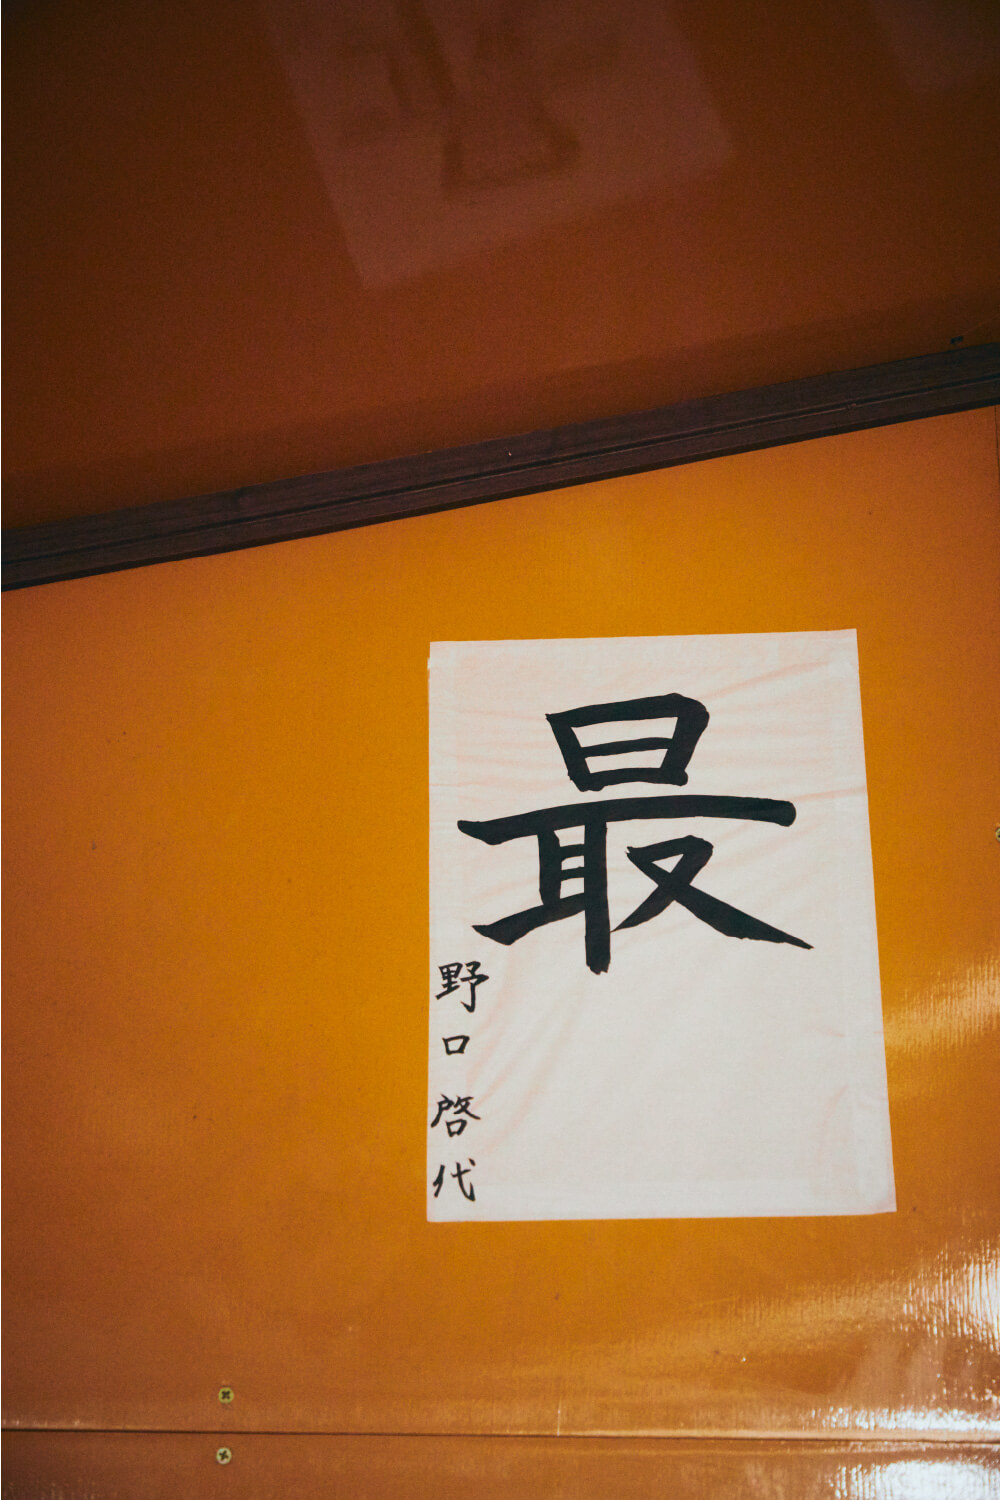 最
野口啓代